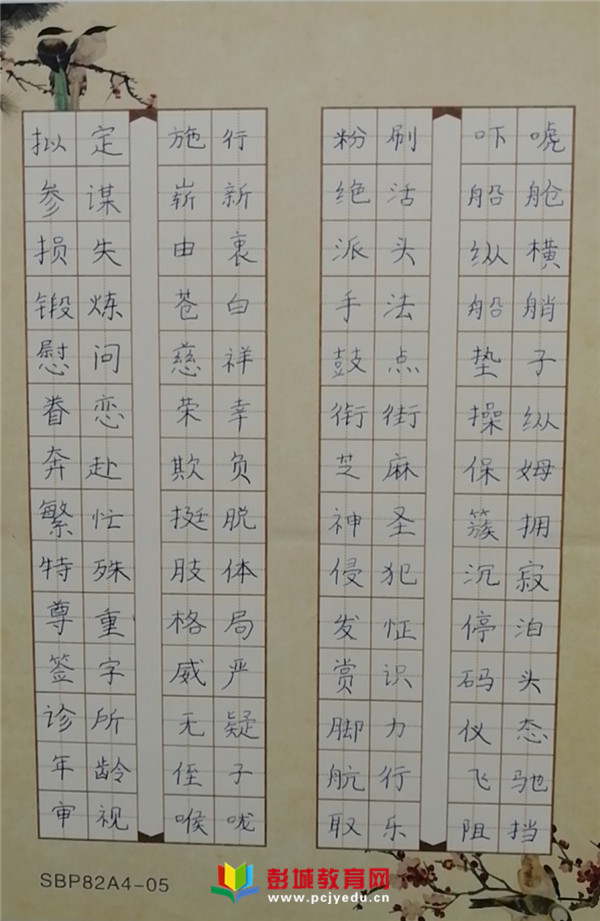 拟定 施行 粉刷 吓唬
参谋 崭新 绝活 船舱
损失 由衷 派头 纵横
锻炼 苍白 手法 船艄
慰问 慈祥 鼓点 垫子
眷恋 荣幸 衔街 操纵
奔赴 欺负 芝麻 保姆
繁忙 挺脱 神圣 簇拥
特殊 肢体 侵犯 沉寂
尊重 格局 发怔 停泊
签字 威严 赏识 码头
诊所 无疑 脚力 仪态
年龄 侄子 航行 飞驰
审视 喉咙 取乐 阻挡
SBP82A4-05
彭城教育网
www.pcjyedu.cn